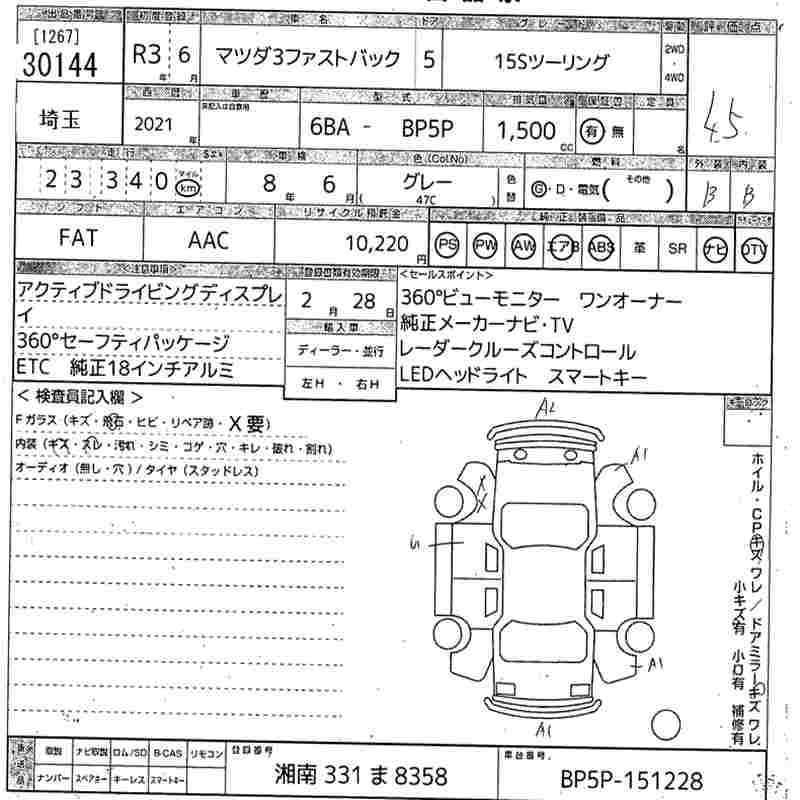 出品番号 初度登録 車名 ドア グレード 装備 評価点
[1267]
30144 R3年 6月 マツダ3ファストバック 5 15Sツーリング 2WD・4WD 4.5
西暦 車歴 型式 排気量 保証書 定員
未記入は自家用
埼玉 2021年 6BA - BP5P 1,500cc 有 無 名
走行 車検 色(Col.No) 燃料 外装 内装
23340 マイル km 8年 6月 グレー (47C) 色替 G・D・電気 (その他) B B
シフト エアコン リサイクル預託金 純正装備品
FAT AAC 10,220円 PS PW AW エアB ABS 革 SR ナビ DTV
<注意事項> 登録書類有効期限 <セールスポイント>
アクティブドライビングディスプレ
イ
360°セーフティパッケージ
ETC 純正18インチアルミ
2月 28日
輸入車
ディーラー・並行
左H ・ 右H
360°ビューモニター ワンオーナー
純正メーカーナビ・TV
レーダークルーズコントロール
LEDヘッドライト スマートキー
<検査員記入欄>
Fガラス (キズ・飛石・ヒビ・リペア跡・X要)
内装 (キズ・スレ・汚れ・シミ・コゲ・穴・キレ・破れ・割れ)
オーディオ (無し・穴) / タイヤ (スタッドレス)
A2
A1
X
X
A1
A1
ホイル・CPキズワレ/ドアミラーキズワレ
小キズ有 小凹有 補修有
後送品 取説 ナビ取説 ロム/SD B-CAS リモコン 登録番号 車台番号
ナンバー スペアキー キーレス スマートキー
湘南 331 ま 8358
BP5P-151228